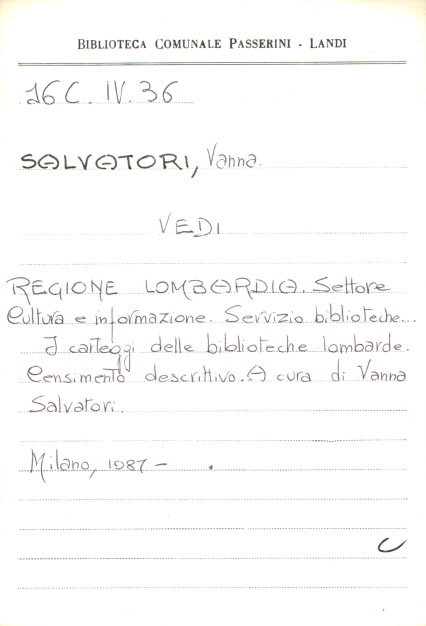 BIBLIOTECA COMUNALE PASSERINI - LANDI
16 C. IV. 36
SALVATORI, Vanna.
VEDI
REGIONE LOMBARDIA. Settore
Cultura e informazione. Servizio biblioteche...
I carteggi delle biblioteche lombarde.
Censimento descrittivo. A cura di Vanna
Salvatori.
Milano, 1987 - .
C